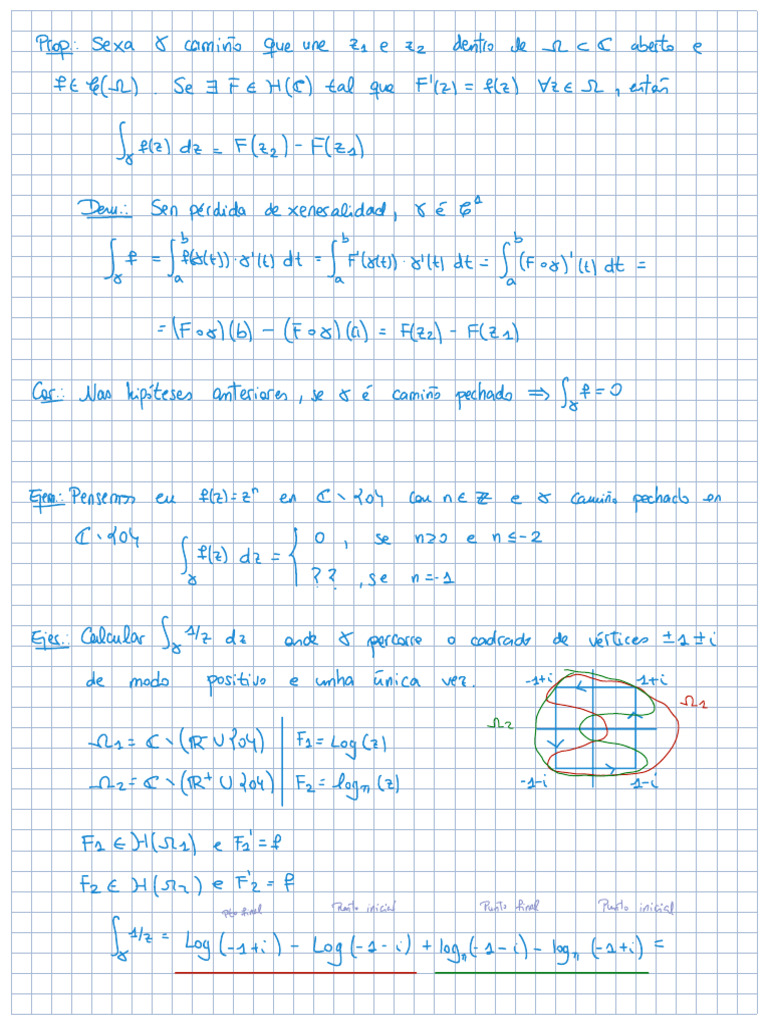 Prop.: Sexa γ camiño que une z1 e z2 dentro de Ω ⊂ ℂ aberto e
f ∈ 𝒞(Ω). Se ∃ F ∈ H(ℂ) tal que F'(z) = f(z) ∀z ∈ Ω, entón
∫γ f(z) dz = F(z2) - F(z1)
Dem.: Sen pérdida de xeneralidad, γ é 𝒞^1
∫γ f = ∫_a^b f(γ(t))·γ'(t) dt = ∫_a^b F'(γ(t))·γ'(t) dt = ∫_a^b (F∘γ)'(t) dt =
= (F∘γ)(b) - (F∘γ)(a) = F(z2) - F(z1)
Cor.: Nas hipóteses anteriores, se γ é camiño pechado ⟹ ∫γ f = 0
Ejem.: Pensemos en f(z) = z^n en ℂ∖{0} con n ∈ ℤ e γ camiño pechado en
ℂ∖{0} ∫γ f(z) dz = { 0, se n≥0 e n≤-2
?? , se n=-1
Ejer.: Calcular ∫γ 1/z dz onde γ percorre o cadrado de vértices ±1±i
de modo positivo e unha única vez.
-1+i 1+i
Ω1
Ω2
-1-i 1-i
Ω1 = ℂ∖(ℝ⁻∪{0}) | F1 = Log(z)
Ω2 = ℂ∖(ℝ⁺∪{0}) | F2 = log_π(z)
F1 ∈ H(Ω1) e F1' = f
F2 ∈ H(Ω2) e F2' = f
Pto final Punto inicial Punto final Punto inicial
∫γ 1/z = Log(-1+i) - Log(-1-i) + log_π(-1-i) - log_π(-1+i) =